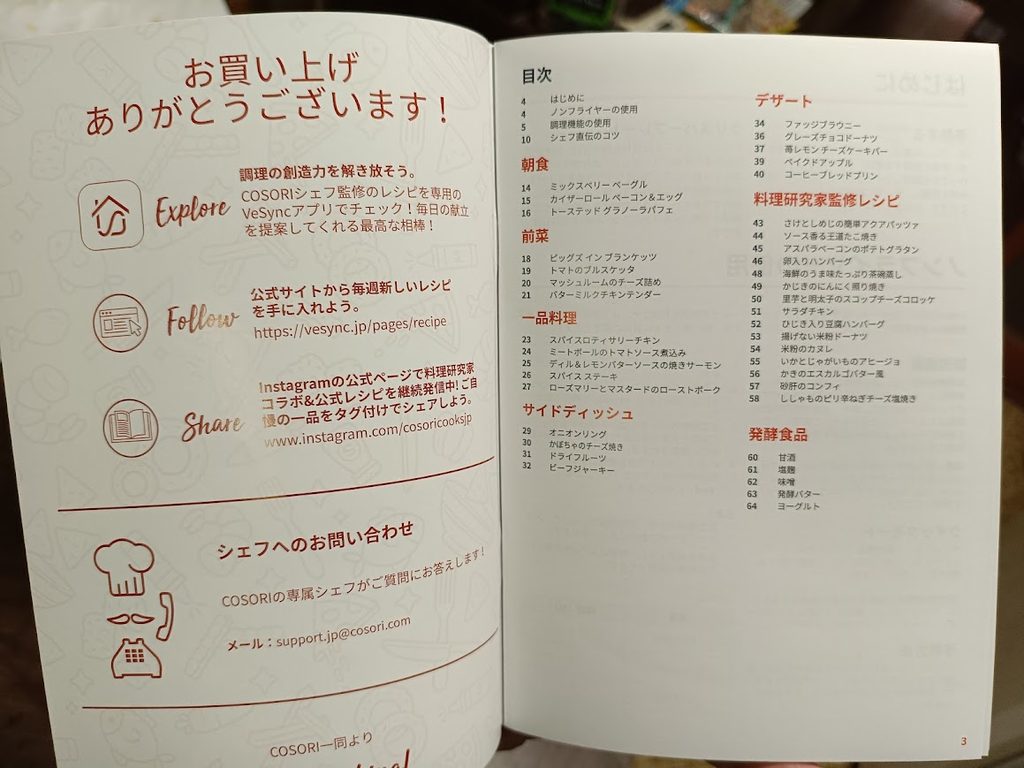 お買い上げ
ありがとうございます！
Explore
調理の創造力を解き放そう。
COSORIシェフ監修のレシピを専用の
VeSyncアプリでチェック！毎日の献立
を提案してくれる最高な相棒！
Follow
公式サイトから毎週新しいレシピ
を手に入れよう。
https://vesync.jp/pages/recipe
Share
Instagramの公式ページで料理研究家
コラボ&公式レシピを継続発信中! ご自
慢の一品をタグ付けでシェアしよう。
www.instagram.com/cosoricooksjp
シェフへのお問い合わせ
COSORIの専属シェフがご質問にお答えします！
メール：support.jp@cosori.com
COSORI一同より
目次
4 はじめに
4 ノンフライヤーの使用
5 調理機能の使用
10 シェフ直伝のコツ
朝食
14 ミックスベリー ベーグル
15 カイザーロール ベーコン＆エッグ
16 トーステッド グラノーラパフェ
前菜
18 ピッグズ イン ブランケッツ
19 トマトのブルスケッタ
20 マッシュルームのチーズ詰め
21 バターミルクチキンテンダー
一品料理
23 スパイスロティサリーチキン
24 ミートボールのトマトソース煮込み
25 ディル＆レモンバターソースの焼きサーモン
26 スパイス ステーキ
27 ローズマリーとマスタードのローストポーク
サイドディッシュ
29 オニオンリング
30 かぼちゃのチーズ焼き
31 ドライフルーツ
32 ビーフジャーキー
デザート
34 ファッジブラウニー
36 グレーズチョコドーナツ
37 苺レモン チーズケーキバー
39 ベイクドアップル
40 コーヒーブレッドプリン
料理研究家監修レシピ
43 さけとしめじの簡単アクアパッツァ
44 ソース香る王道たこ焼き
45 アスパラベーコンのポテトグラタン
46 卵入りハンバーグ
48 海鮮のうま味たっぷり茶碗蒸し
49 かじきのにんにく照り焼き
50 里芋と明太子のスコップチーズコロッケ
51 サラダチキン
52 ひじき入り豆腐ハンバーグ
53 揚げない米粉ドーナツ
54 米粉のカヌレ
55 いかとじゃがいものアヒージョ
56 かきのエスカルゴバター風
57 砂肝のコンフィ
58 ししゃものピリ辛ねぎチーズ塩焼き
発酵食品
60 甘酒
61 塩麹
62 味噌
63 発酵バター
64 ヨーグルト
3